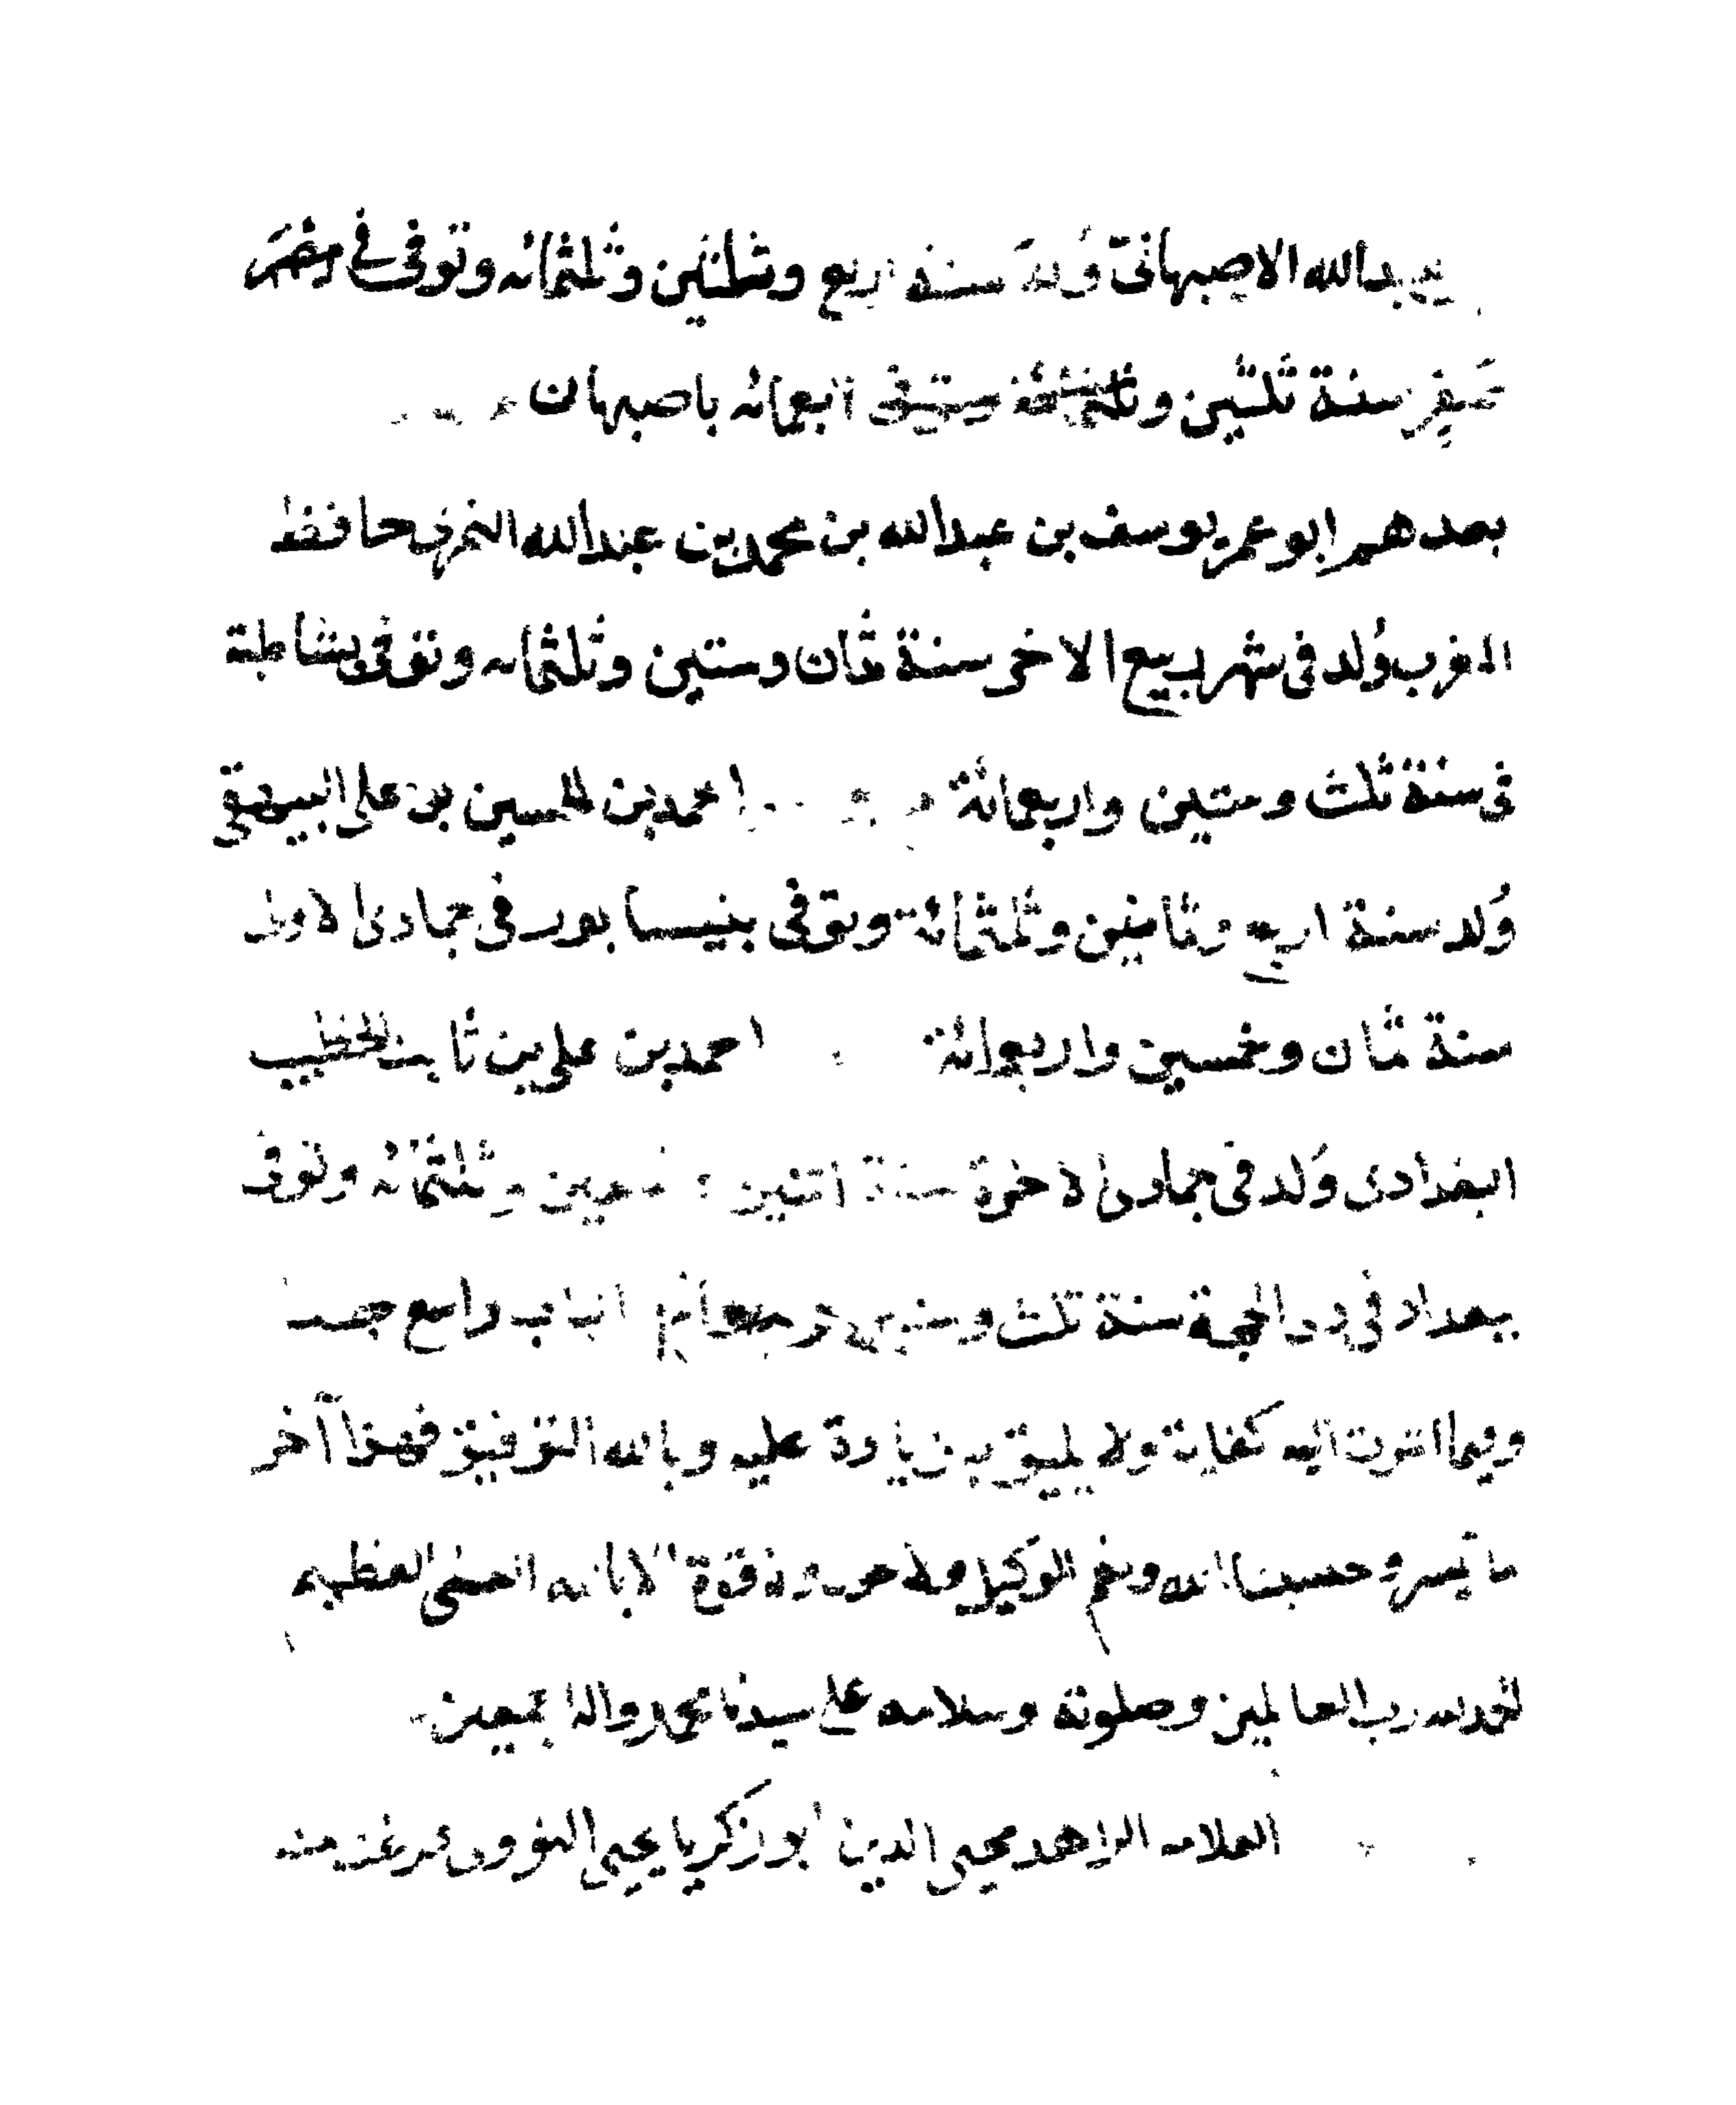 عبدالله الاصبهانى وُلد سنة اربع وثلثين وثلثمائه وتوفى فى
صفر سنة ثلثين واربعمائه باصبهان
بعدهم ابو عمر يوسف بن عبدالله بن محمد بن عبدالله النمرى حافظ
المغرب وُلد فى شهر ربيع الاخر سنة ثمان وستين وثلثمائه وتوفى بشاطبة
فى سنة ثلث وستين واربعمائة احمد بن الحسين بن على البيهقى
وُلد سنة اربع وثمانين وثلثمائة وتوفى بنيسابور فى جمادى الاولى
سنة ثمان وخمسين واربعمائة احمد بن على بن ثابت الخطيب
البغدادى وُلد فى جمادى الاخرة سنة اثنين وتسعين وثلثمائه وتوفى
ببغداد فى ذى الحجة سنة ثلث وستين واربعمائه الباب واسع جدا
وفيما اشرت اليه كفاية ولا يليق به زيادة عليه وبالله التوفيق فهذا آخر
ما تيسر وحسبنا الله ونعم الوكيل ولا حول ولا قوة الا بالله العلى العظيم
الحمد لله رب العالمين وصلوته وسلامه على سيدنا محمد واله اجمعين
العلامه الزاهد محيى الدين ابو زكريا يحيى النووى فرغت منه